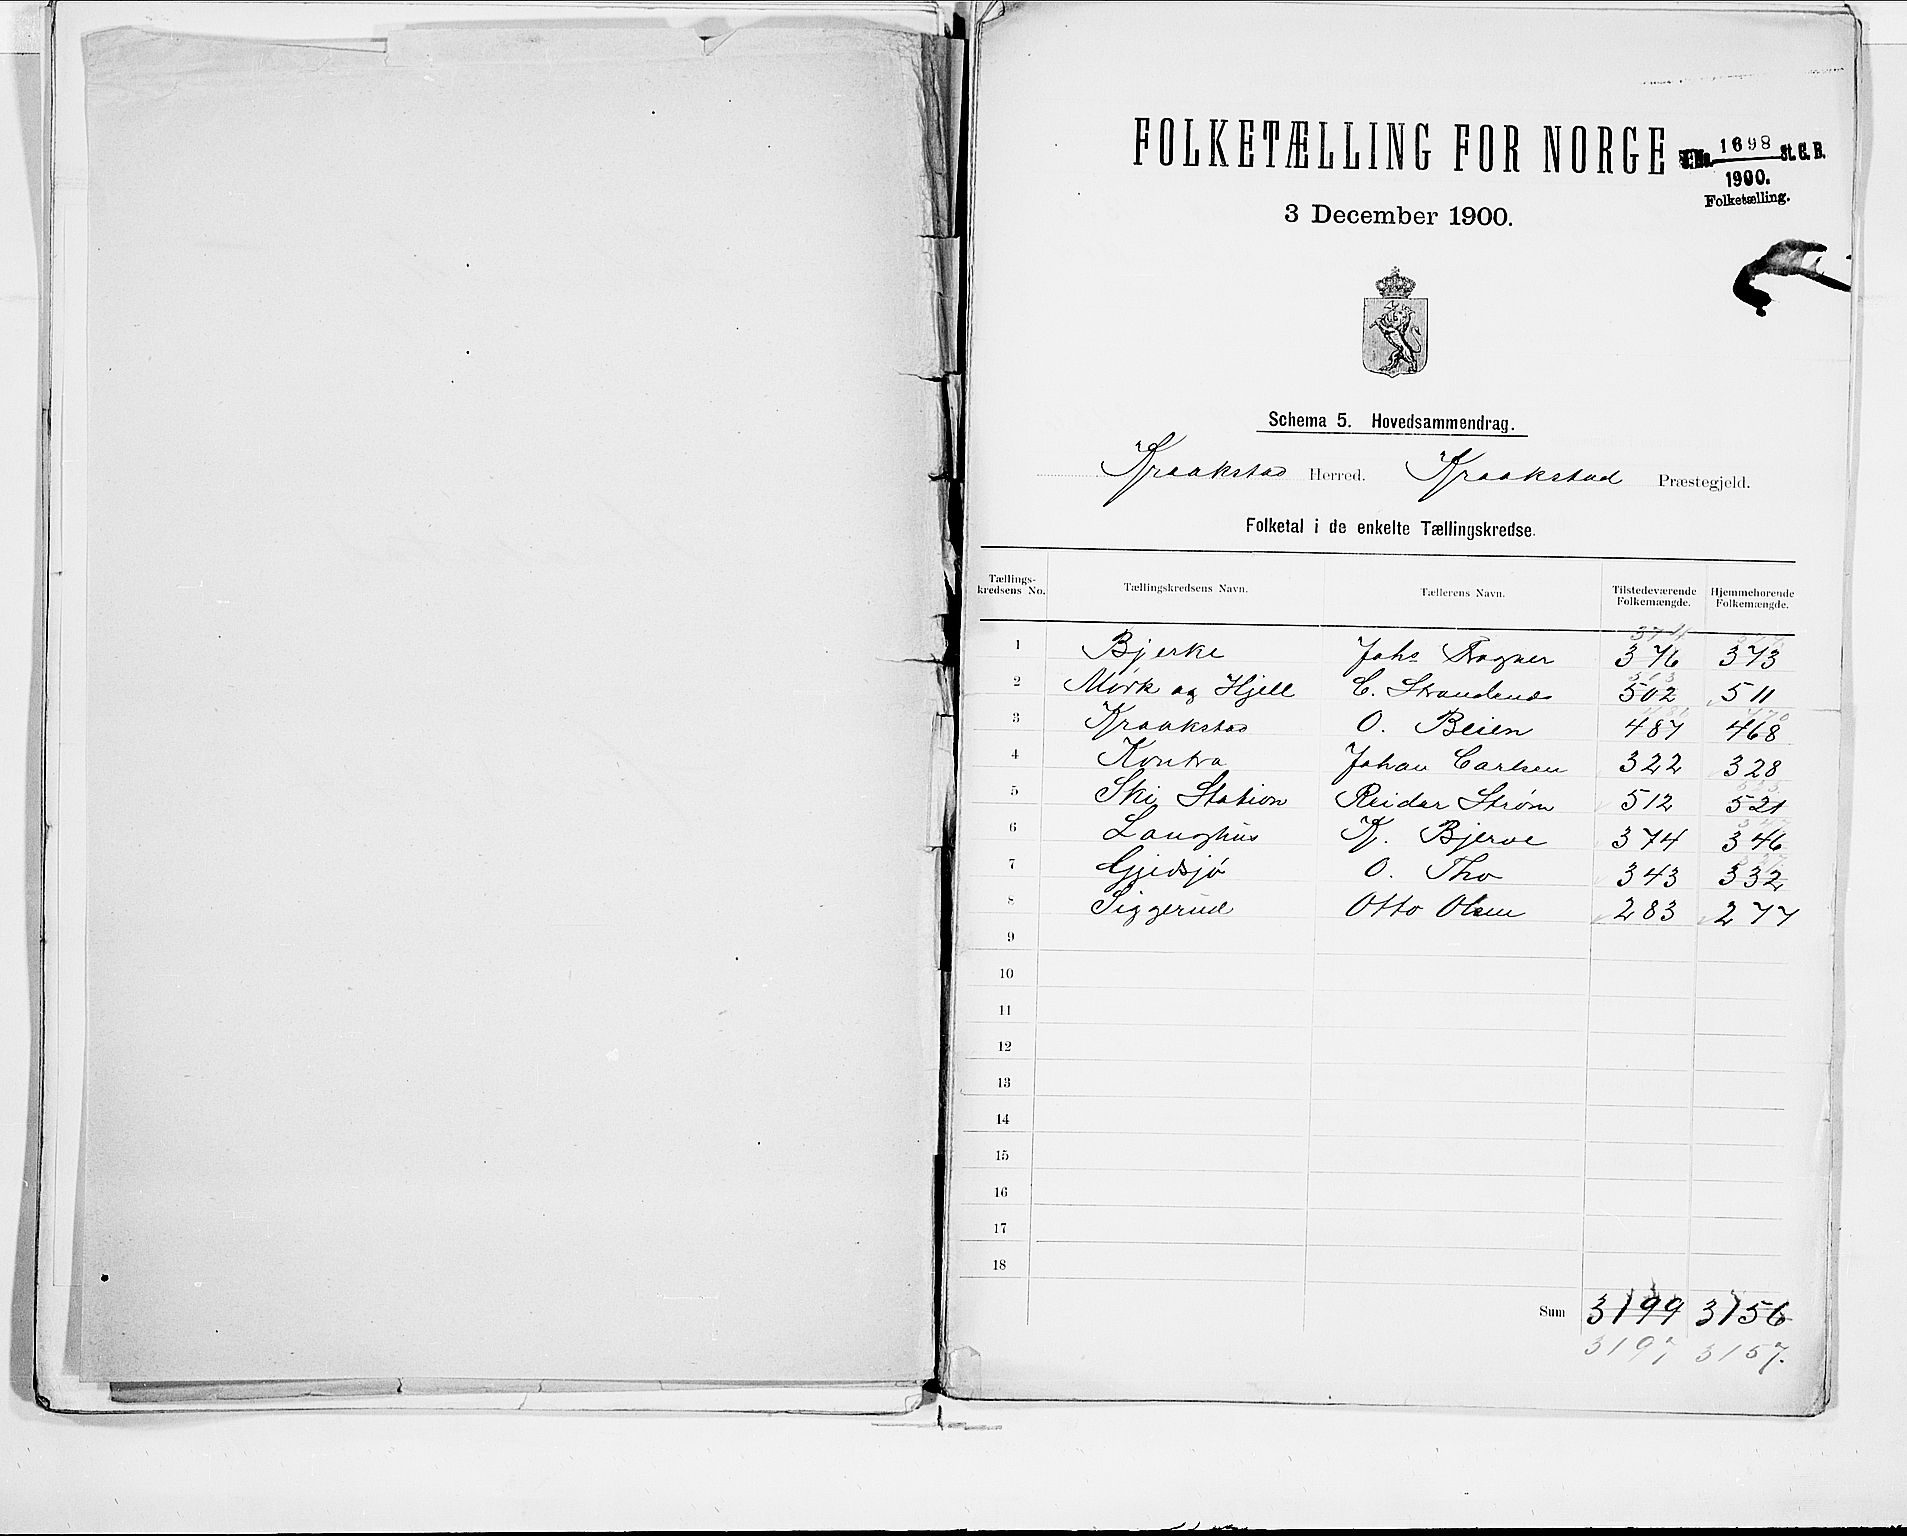 FOLKETÆLLING FOR NORGE
J. No. 1698 St. C. B.
1900.
Folketælling.
3 December 1900.
Schema 5. Hovedsammendrag.
Kraakstad Herred. Kraakstad Præstegjeld.
Folketal i de enkelte Tællingskredse.
Tællings-kredsens No. Tællingskredsens Navn. Tællerens Navn. Tilstedeværende Folkemængde. Hjemmehørende Folkemængde.
374
1 Bjerke Johs Wagner 376 373
513
2 Mørk og Hjell C. Strandend 502 511
470
3 Kraakstad O. Beien 487 468
4 Kontra Johan Carlsen 322 328
5 Ski Station Reidar Strøm 512 521
6 Langhus K. Bjerve 374 346
7 Gjedsjø O. Tho 343 332
8 Siggerud Otto Olsen 283 277
9
10
11
12
13
14
15
16
17
18
Sum 3199 3156
3197 3157.